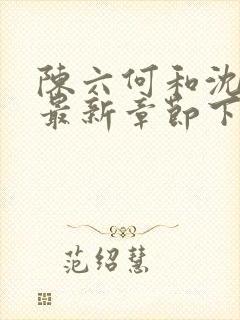 陈六何和沈
最新章节下
范绍慧